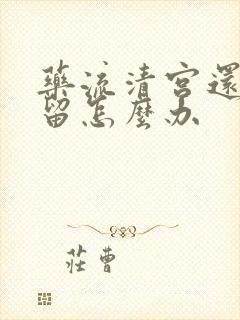 藥流清宮還
留怎麼办
莊曹